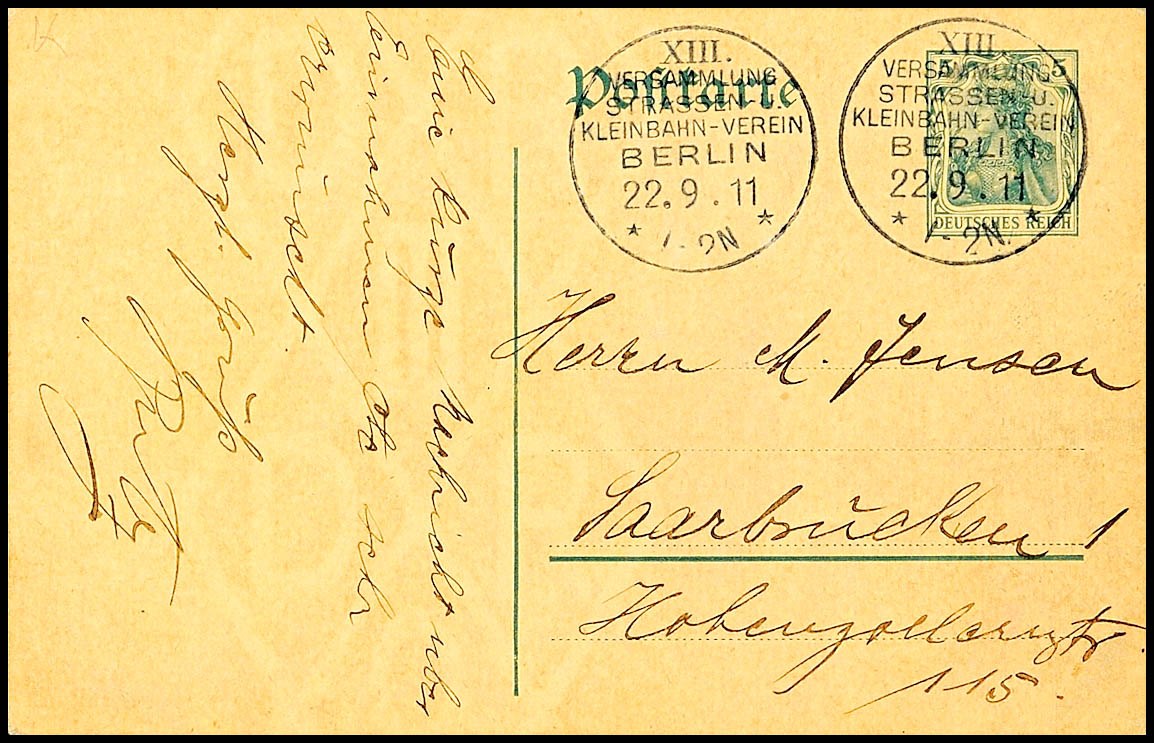 Postkarte
XIII.
VERSAMMLUNG
STRASSEN-U.
KLEINBAHN-VEREIN
BERLIN
22.9.11
* 1-2N. *
XIII.
VERSAMMLUNG
STRASSEN-U.
KLEINBAHN-VEREIN
BERLIN
22.9.11
* 1-2N. *
5 5
DEUTSCHES REICH
Herrn M. Jensen
Saarbrücken 1
Hohenzollernstr
115.
Eine kurze Nachricht über
sehr
erwünscht.
Herzl. Gruß